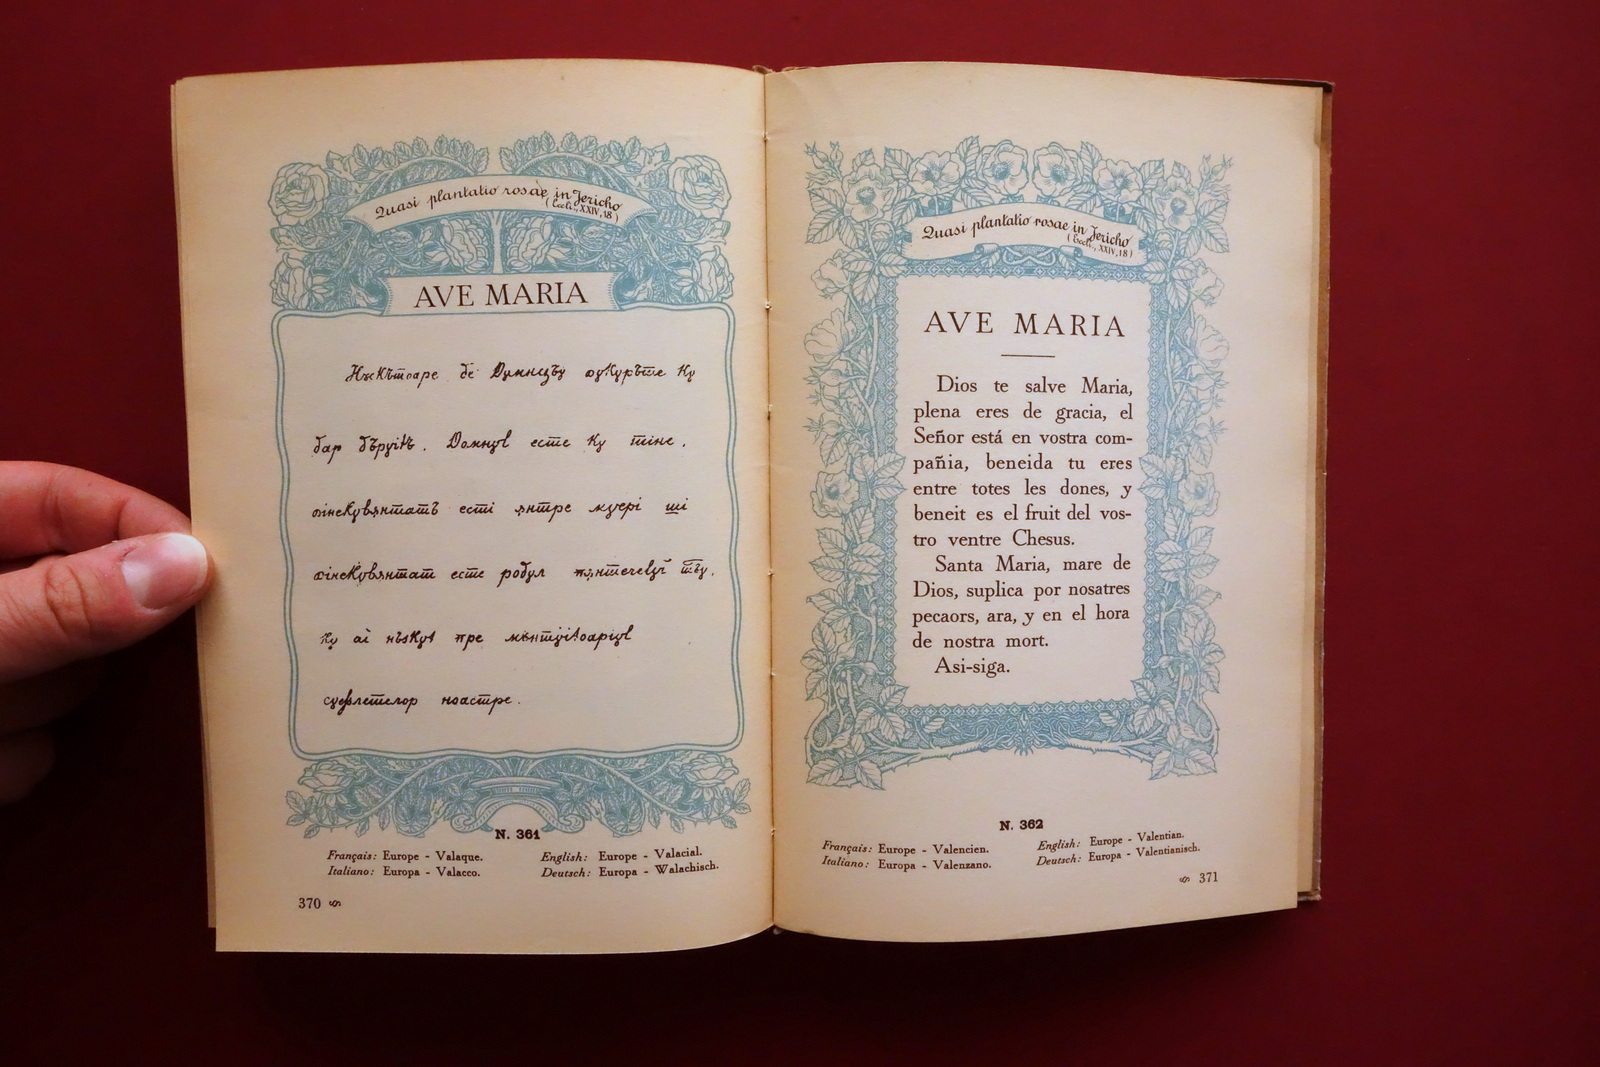 Quasi plantatio rosae in Jericho
(Eccli., XXIV, 18)
AVE MARIA
де
бар
есте Ку тіне.
есті ꙟнтре муері ші
есте родул
Ку аі пре
ноастре.
N. 361
Français: Europe - Valaque.
Italiano: Europa - Valacco.
English: Europe - Valacial.
Deutsch: Europa - Walachisch.
370
Quasi plantatio rosae in Jericho
(Eccli., XXIV, 18)
AVE MARIA
Dios te salve Maria,
plena eres de gracia, el
Señor está en vostra com-
pañia, beneida tu eres
entre totes les dones, y
beneit es el fruit del vos-
tro ventre Chesus.
Santa Maria, mare de
Dios, suplica por nosatres
pecaors, ara, y en el hora
de nostra mort.
Asi-siga.
N. 362
Français: Europe - Valencien.
Italiano: Europa - Valenzano.
English: Europe - Valentian.
Deutsch: Europa - Valentianisch.
371